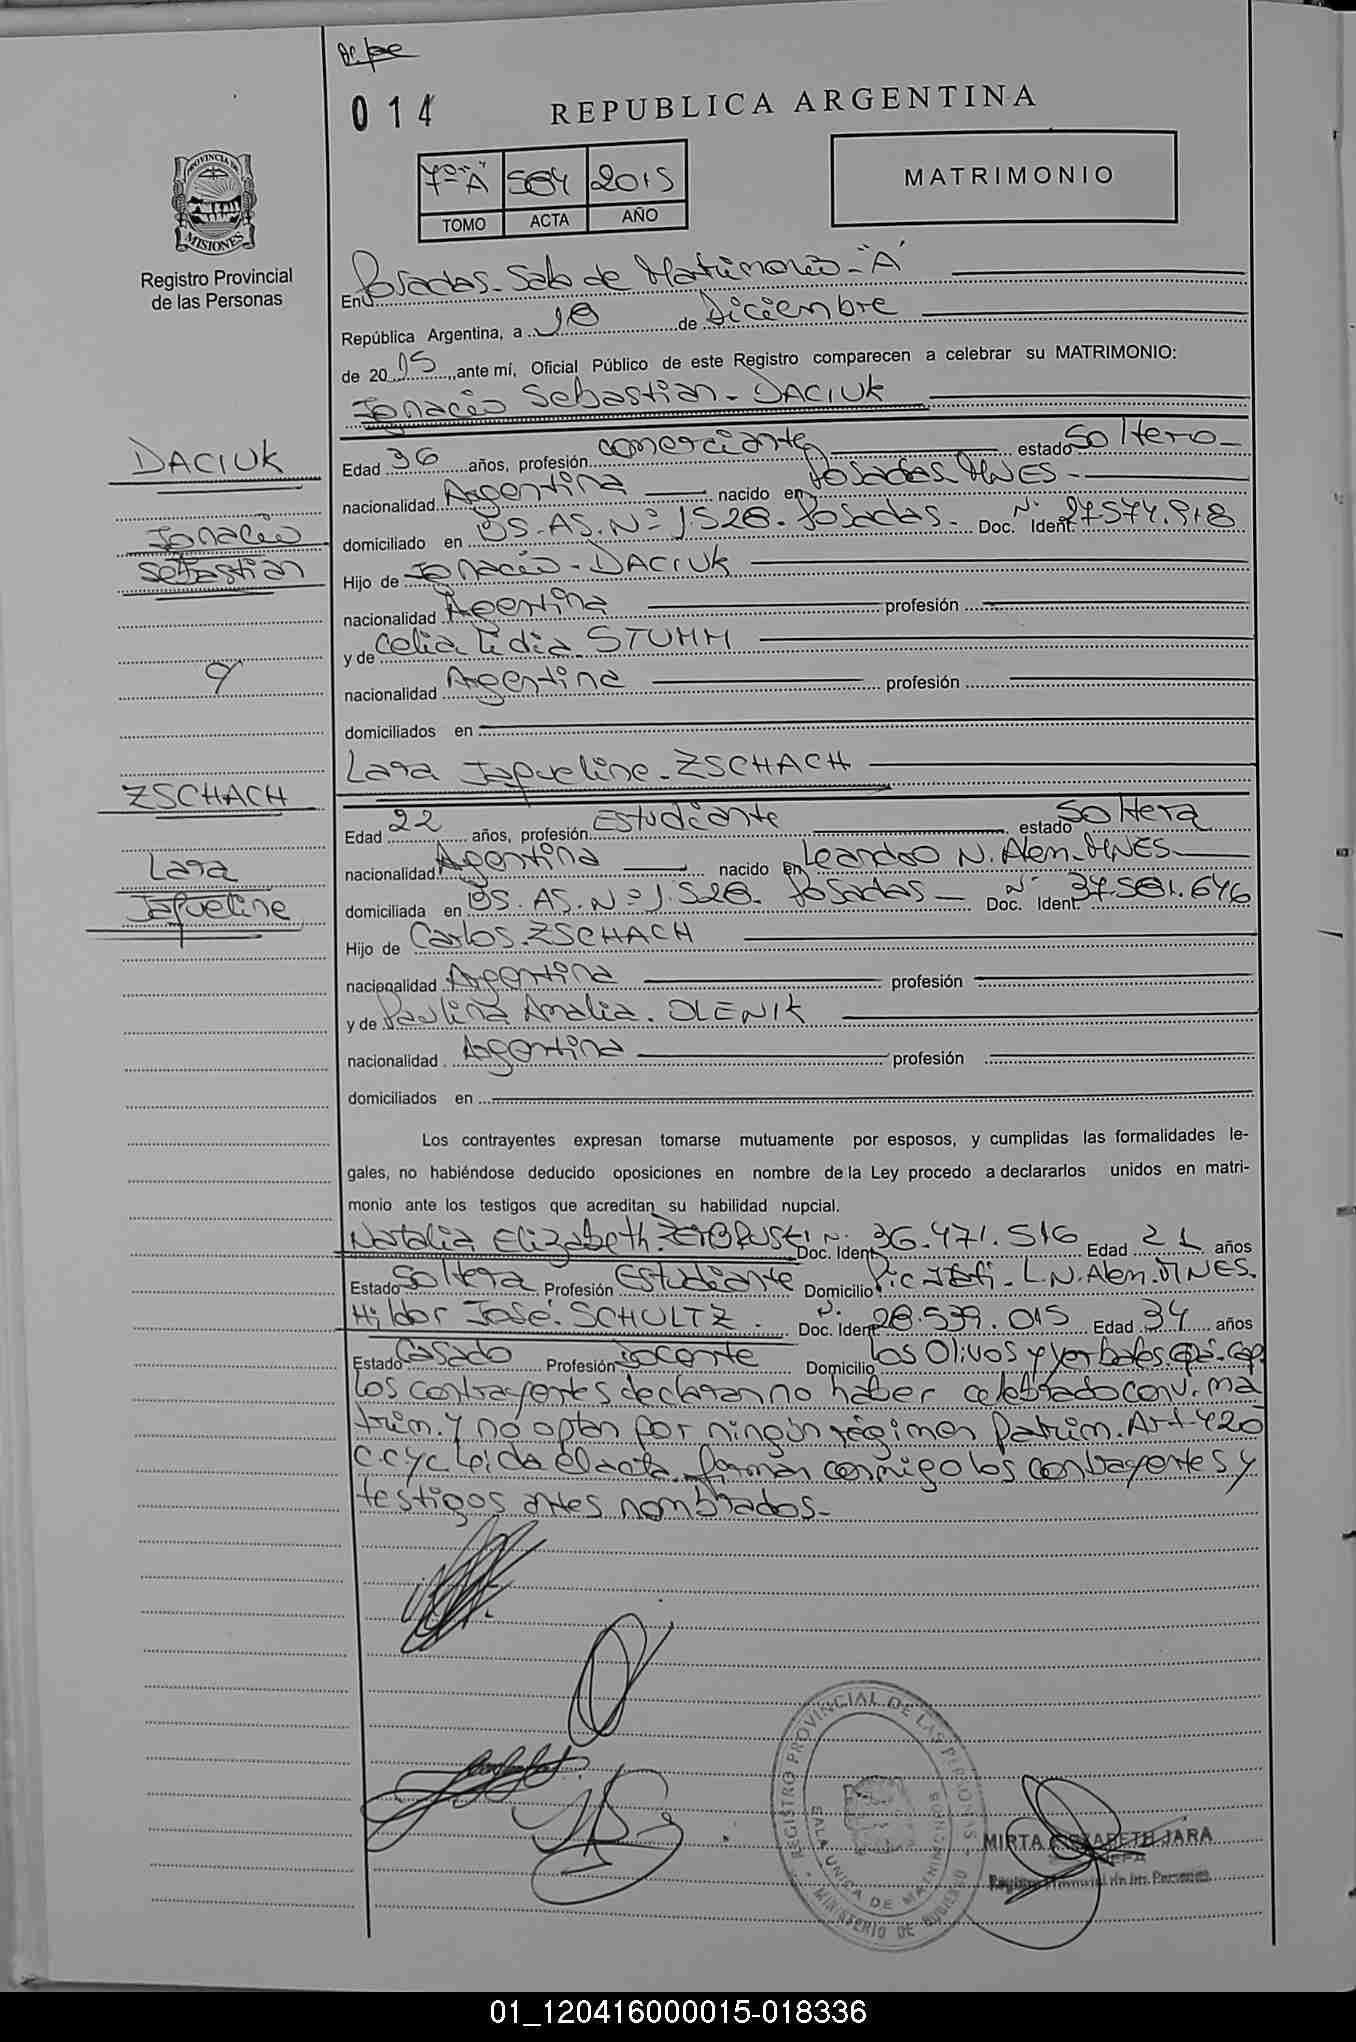 014
REPUBLICA ARGENTINA
PROVINCIA DE
MISIONES
Registro Provincial
de las Personas
7º "A" 504 2015
TOMO ACTA AÑO
MATRIMONIO
En Posadas - Sala de Matrimonio - "A"
República Argentina, a 18 de Diciembre
de 2015, ante mí, Oficial Público de este Registro comparecen a celebrar su MATRIMONIO:
Ignacio Sebastian - DACIUK
DACIUK
Edad 36 años, profesión comerciante estado Soltero
nacionalidad Argentina nacido en Posadas. MNES -
Ignacio
domiciliado en BS. AS. Nº 1.528. Posadas. Doc. Nº Ident. 27.574.918
Sebastian
Hijo de Ignacio - DACIUK
nacionalidad Argentina profesión
y de Celia Lidia STUMM
nacionalidad Argentina profesión
domiciliados en
Lara Jaqueline - ZSCHACH
ZSCHACH
Edad 22 años, profesión Estudiante estado Soltera
Lara
nacionalidad Argentina nacido en Leandro N. Alem - MNES
Jaqueline
domiciliada en BS. AS. Nº 1.528. Posadas - Doc. Nº Ident. 37.581.646
Hijo de Carlos. ZSCHACH
nacionalidad Argentina profesión
y de Paulina Amalia. OLENIK
nacionalidad Argentina profesión
domiciliados en
Los contrayentes expresan tomarse mutuamente por esposos, y cumplidas las formalidades le-
gales, no habiéndose deducido oposiciones en nombre de la Ley procedo a declararlos unidos en matri-
monio ante los testigos que acreditan su habilidad nupcial.
Natalia Elizabeth. Doc. Ident. 36.471.516 Edad 21 años
Estado Soltera Profesión Estudiante Domicilio L.N. Alem. MNES.
Hildor José. SCHULTZ. Doc. Ident. 28.539.015 Edad 34 años
Estado Casado Profesión Docente Domicilio Los Olivos y Yerbales
Los contrayentes declaran no haber celebrado conv. ma
trim. y no optan por ningún régimen Patrim. Art 420
C.C y C Leida el acta, firman conmigo los contrayentes y
testigos antes nombrados.-
REGISTRO PROVINCIAL DE LAS PERSONAS
SALA UNICA DE MATRIMONIOS
MINISTERIO DE GOBIERNO
MIRTA ELIZABETH JARA
JEFA
Registro Provincial de las Personas
01_120416000015-018336